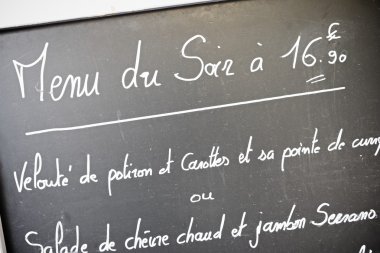 Menu du Soir à 16 €.90
Velouté de potiron et Carottes et sa pointe de cum
ou
Salade de chèvre chaud et jambon Serrano